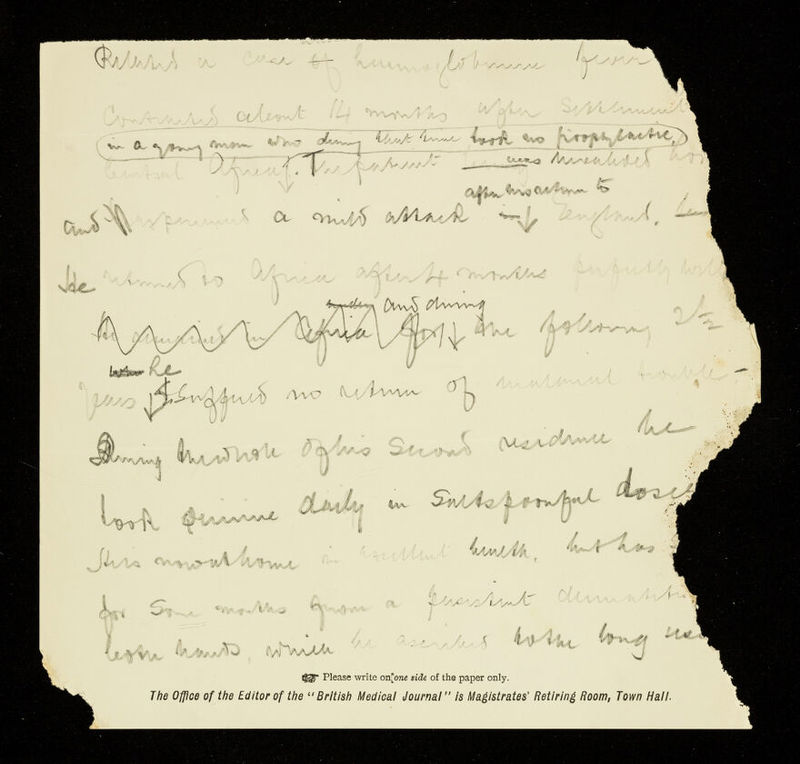 Related a case of haemoglobinuric fever
Contracted about 14 months after settlement
in a young man who during that time took no prophylactic,
Central Africa. The patient was invalided
after his return to
and experienced a mild attack in England,
He returned to Africa after 4 months perfectly well
and during
He remained in Africa for the following 2½
he
years suffered no return of malarial trouble -
During the whole of his second residence he
took quinine daily in saltspoonful doses
He is now at home in excellent health, but has
for some months from a persistent dermatitis
both hands, which he ascribed to the long use
Please write on one side of the paper only.
The Office of the Editor of the "British Medical Journal" is Magistrates' Retiring Room, Town Hall.